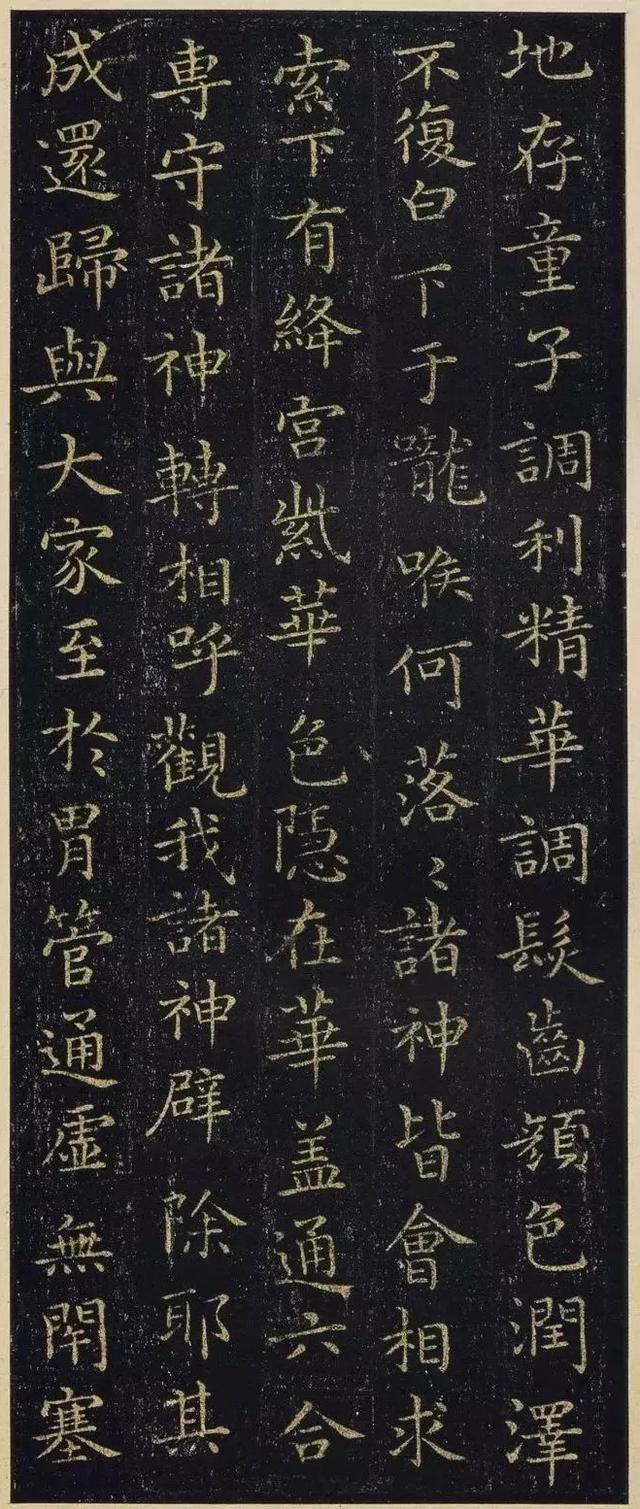 地存童子調利精華調髮齒顏色潤澤
不復白下于嚨喉何落〻諸神皆會相求
索下有絳宮紫華色隱在華盖通六合
専守諸神轉相呼觀我諸神辟除耶其
成還歸與大家至於胃管通虛無閇塞